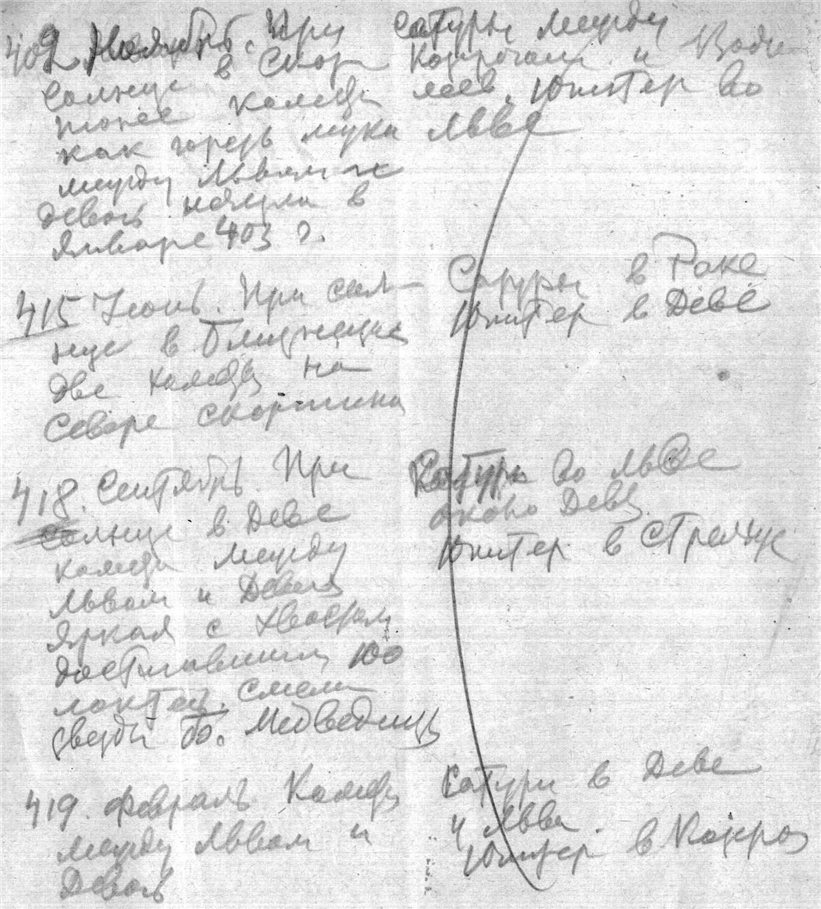 402 Ноябрь. При
солнце в Скор-
пионе комета
как горсть муки
между Львом и
Девой начала в
Январе 403 г.
Сатурн между
Козерогом и Водо-
леев. Юпитер во
Льве
415 Июнь. При сол-
нце в Близнецах
две кометы на
Севере скорпиона
Сатурн в Раке
Юпитер в Деве
418. Сентябрь. При
солнце в Деве
комета между
Львом и Девой
Яркая с хвостом
достигавшим 100
локтей. Смела
звезды Б. Медведицы
Сатурн во Льве
около Девы
Юпитер в Стрельце
419. Февраль Комета
между Львом и
Девой
Сатурн в Деве
и Льва.
Юпитер в Козерог